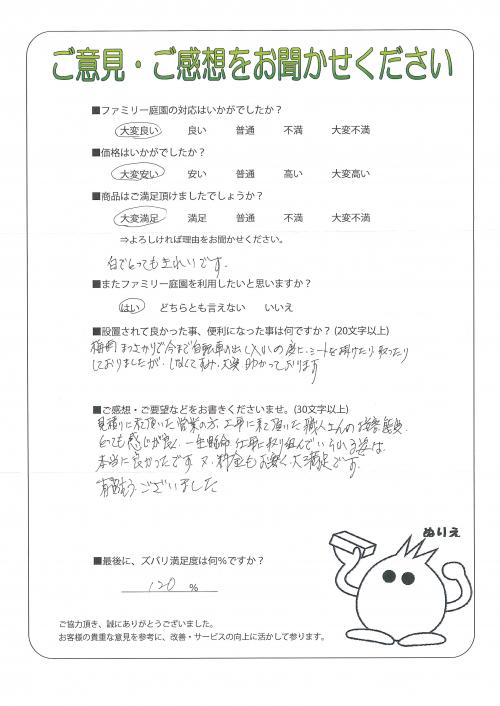 ご意見・ご感想をお聞かせください
■ファミリー庭園の対応はいかがでしたか？
大変良い 良い 普通 不満 大変不満
■価格はいかがでしたか？
大変安い 安い 普通 高い 大変高い
■商品はご満足頂けましたでしょうか？
大変満足 満足 普通 不満 大変不満
⇒よろしければ理由をお聞かせください。
白でとってもきれいです。
■またファミリー庭園を利用したいと思いますか？
はい どちらとも言えない いいえ
■設置されて良かった事、便利になった事は何ですか？(20文字以上)
今まで自転車の出し入れの度に、シートを掛けたり、取ったり
しておりましたが、しなくてすみ、大変、助かっております
■ご感想・ご要望などをお書きくださいませ。(30文字以上)
見積りに来て頂いた営業の方、工事に来て頂いた職人さんの接客態度、
とっても感じが良く、一生懸命仕事に取り組んでいらいる姿は
本当に良かったです 又、料金もお安く、大満足です。
有難うございました
■最後に、ズバリ満足度は何％ですか？
120 %
ぬりえ
ご協力頂き、誠にありがとうございました。
お客様の貴重な意見を参考に、改善・サービスの向上に活かして参ります。